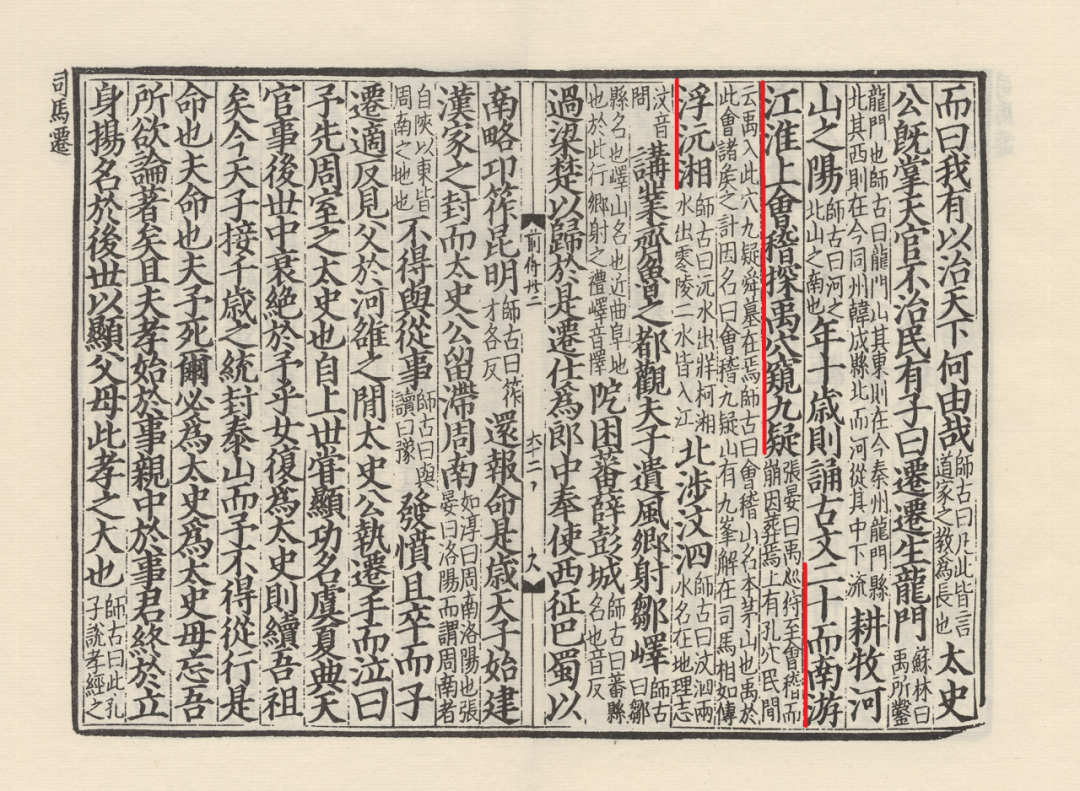 而曰我有以治天下何由哉師古曰凡此皆言道家之教爲長也太史
公既掌天官不治民有子曰遷遷生龍門蘇林曰禹所鑿
龍門也師古曰龍門山其東則在今秦州龍門縣北其西則在今同州韓成縣北而河從其中下流耕牧河
山之陽師古曰河之北山之南也年十歲則誦古文二十而南游
江淮上會稽探禹穴窺九疑張晏曰禹巡狩至會稽而崩因葬焉上有孔穴民間
云禹入此穴九疑舜墓在焉師古曰會稽山名本茅山也禹於此會諸侯之計因名曰會稽九疑山有九峯解在司馬相如傳
浮沅湘師古曰沅水出牂柯湘水出零陵二水皆入江北涉汶泗師古曰汶泗兩水名在地理志
汶音問講業齊魯之都觀夫子遺風鄉射鄒嶧師古曰鄒
縣名也嶧山名也近曲阜地也於此行鄉射之禮嶧音懌阸困蕃薛彭城師古曰蕃縣名也音反
過梁楚以歸於是遷仕爲郎中奉使西征巴蜀以
前傳卅二 六十二
南略邛筰昆明師古曰筰才各反還報命是歲天子始建
漢家之封而太史公留滯周南如淳曰周南洛陽也張晏曰洛陽而謂周南者
自陝以東皆周南之地也不得與從事師古曰與讀曰豫發憤且卒而子
遷適反見父於河雒之間太史公執遷手而泣曰
予先周室之太史也自上世嘗顯功名虞夏典天
官事後世中衰絕於予乎女復爲太史則續吾祖
矣今天子接千歲之統封泰山而予不得從行是
命也夫命也夫予死爾必爲太史爲太史毋忘吾
所欲論著矣且夫孝始於事親中於事君終於立
身揚名於後世以顯父母此孝之大也師古曰此孔子說孝經之
司馬遷